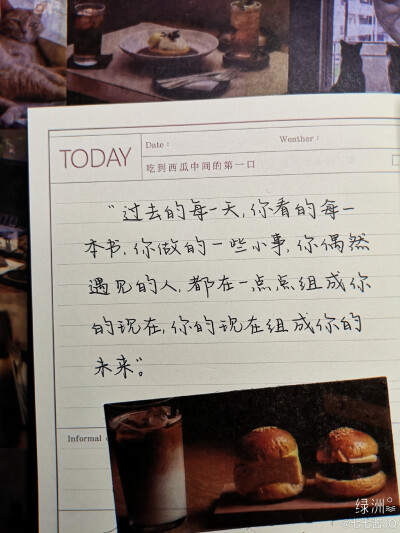 TODAY
Date：
Weather：
吃到西瓜中间的第一口
“过去的每一天，你看的每一
本书，你做的一些小事，你偶然
遇见的人，都在一点点组成你
的现在，你的现在组成你的
未来”。
Informal
绿洲